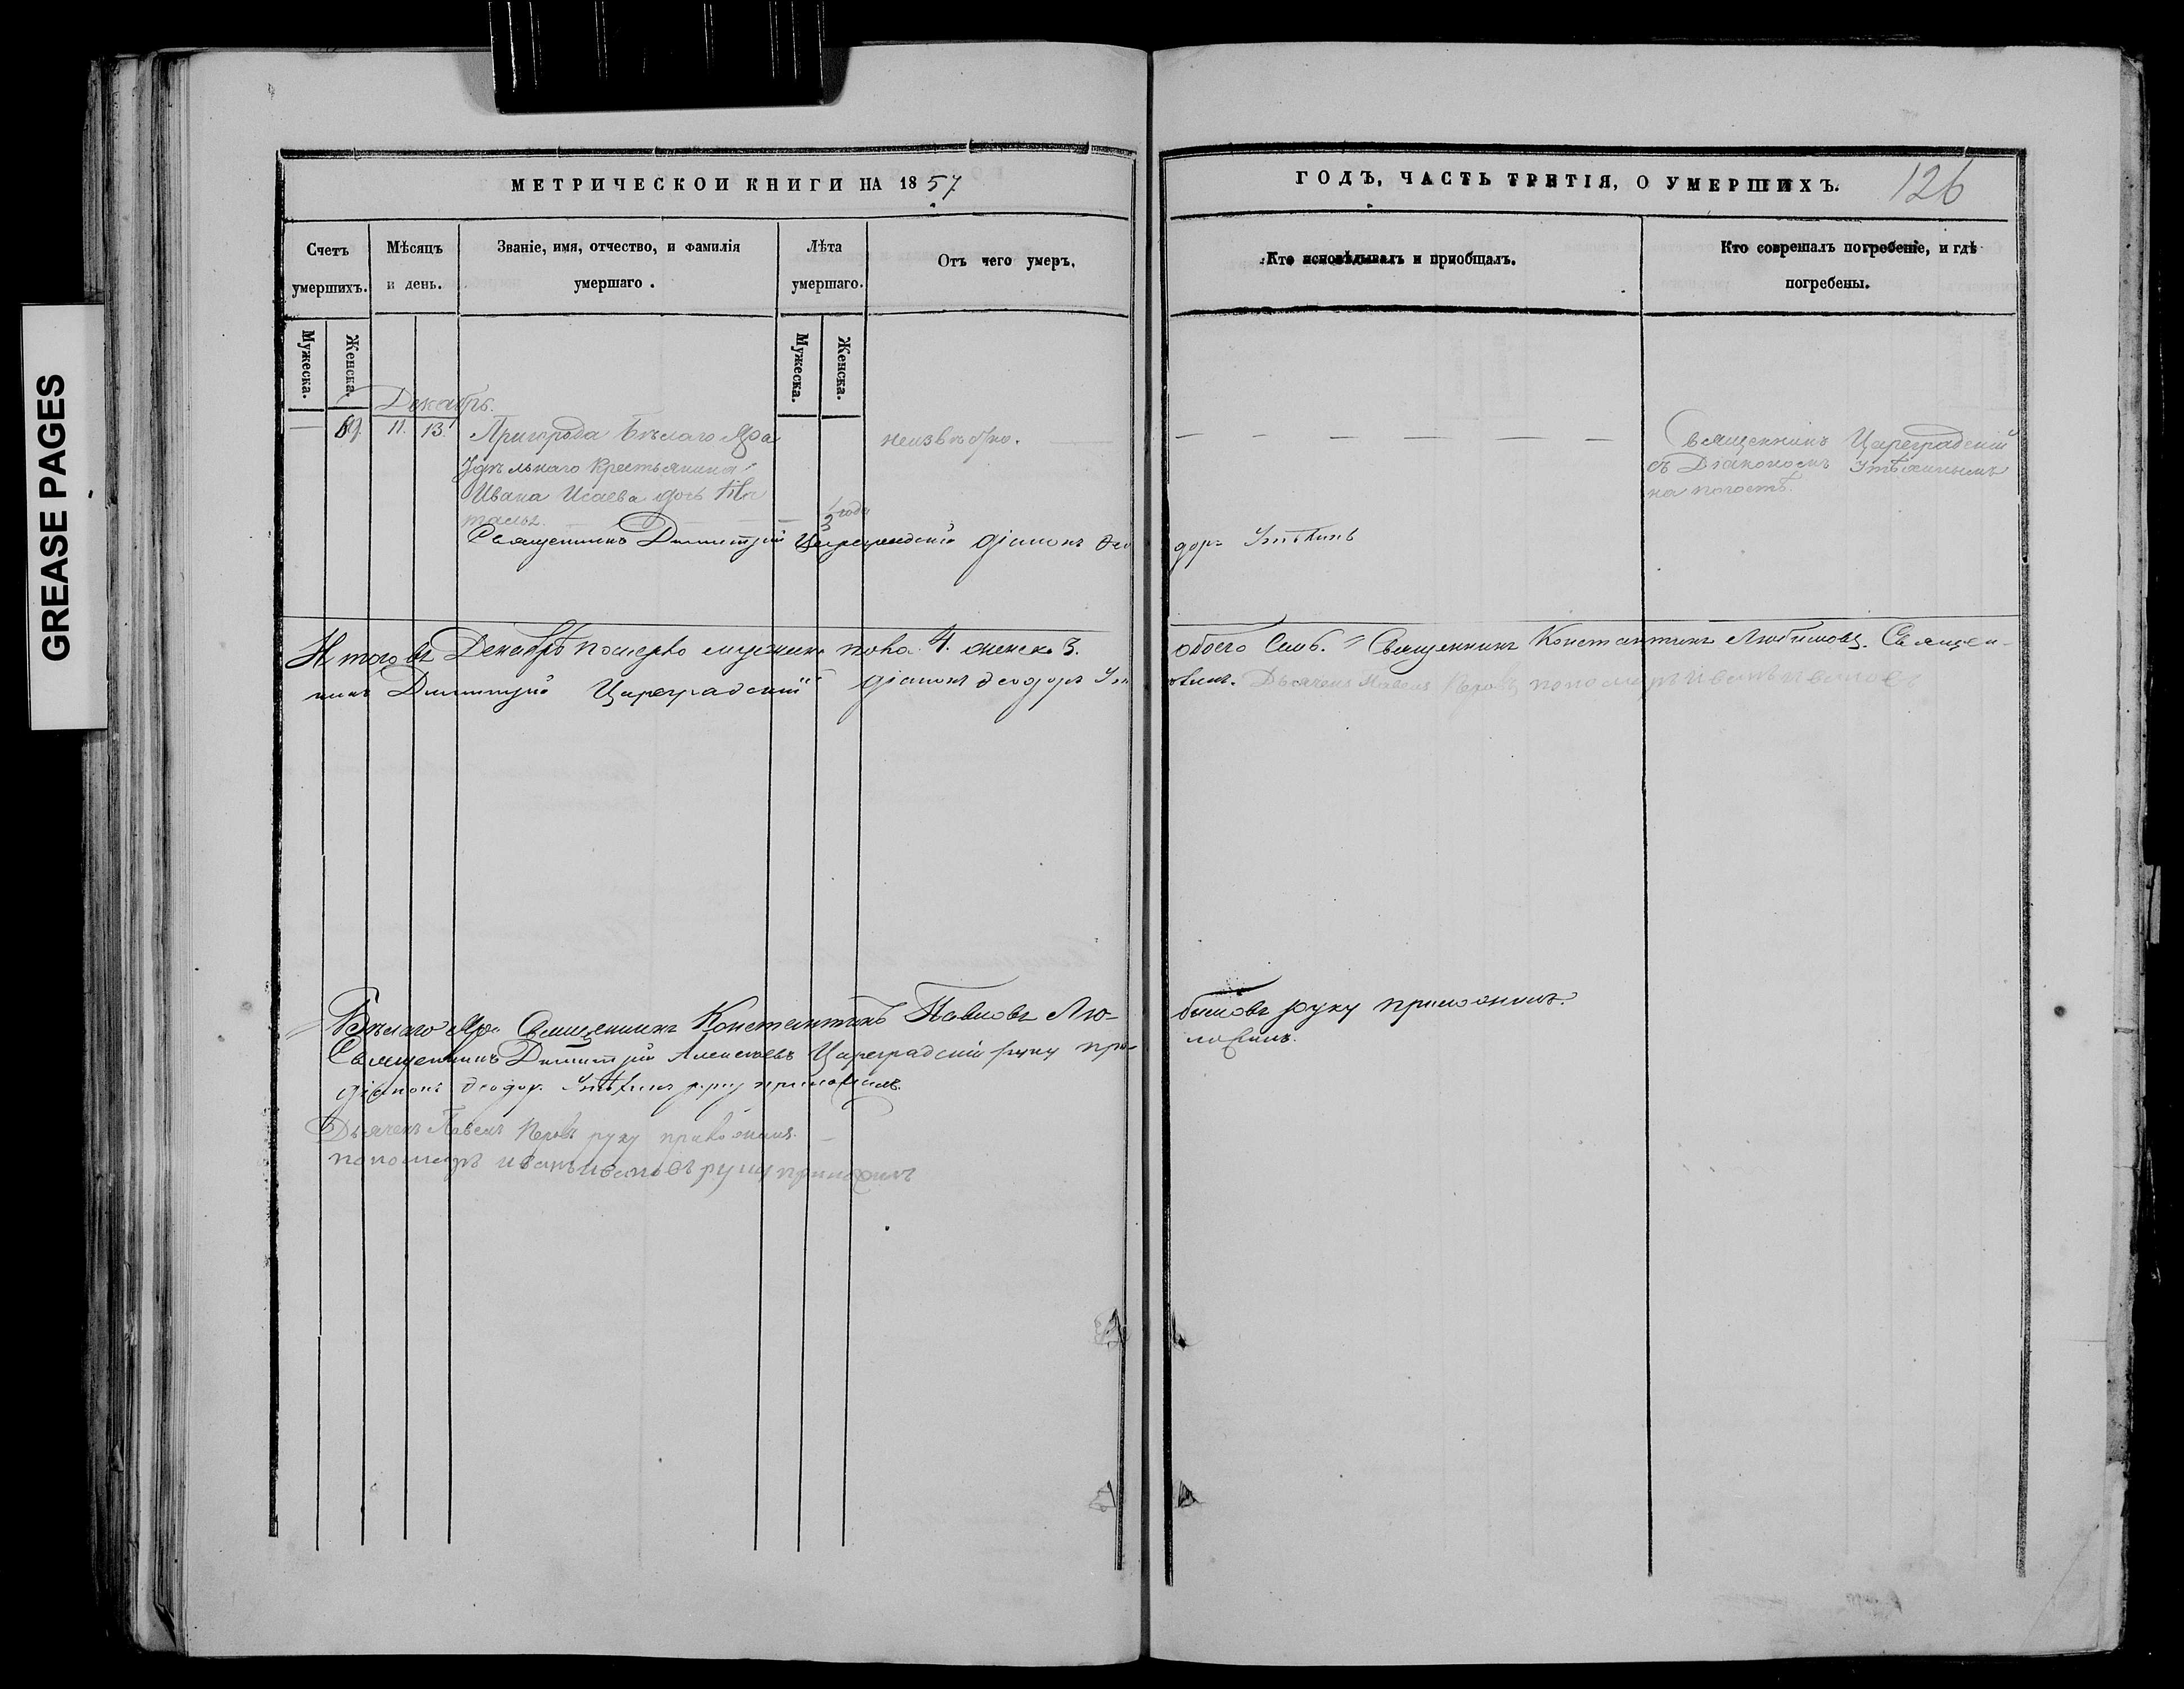 GREASE PAGES
МЕТРИЧЕСКОЙ КНИГИ НА 1857
ГОДЪ, ЧАСТЬ ТРЕТІЯ, О УМЕРШИХЪ.
126
Счетъ умершихъ.
Мѣсяцъ и день.
Званіе, имя, отчество, и фамилія умершаго.
Лѣта умершаго.
Отъ чего умеръ.
Кто исповѣдывалъ и пріобщалъ.
Кто совершалъ погребеніе, и гдѣ погребены.
Мужеска.
Женска.
Мужеска.
Женска.
Декабрь.
11. 13. Пригорода Бѣлаго Яра
неизвѣстно.
Удѣльнаго Крестьянина
Ивана Исаева дочь На
талья.
3 года
Священникъ Цареградскій
съ Діакономъ Утѣхинымъ
на погостѣ.
Священникъ Димитрій Цареградскій діаконъ Ѳео
доръ Утѣхинъ
Итого въ Декабрѣ померло мужеска пола 4. женска 3.
обоего семь. Священникъ Константинъ Любимовъ. Священ-
никъ Димитрій Цареградскій діаконъ Ѳеодоръ Ут
ѣхинъ. Дьячекъ Павелъ пономарь Иванъ Ивановъ
Бѣлаго Яра Священникъ Константинъ Павловъ Лю-
бимовъ руку приложилъ.
Священникъ Димитрій Алексѣевъ Цареградскій руку при-
ложилъ.
діаконъ Ѳеодоръ Утѣхинъ руку приложилъ.
Дьячекъ Павелъ руку приложилъ.
пономарь иванъ ивановъ руку приложилъ